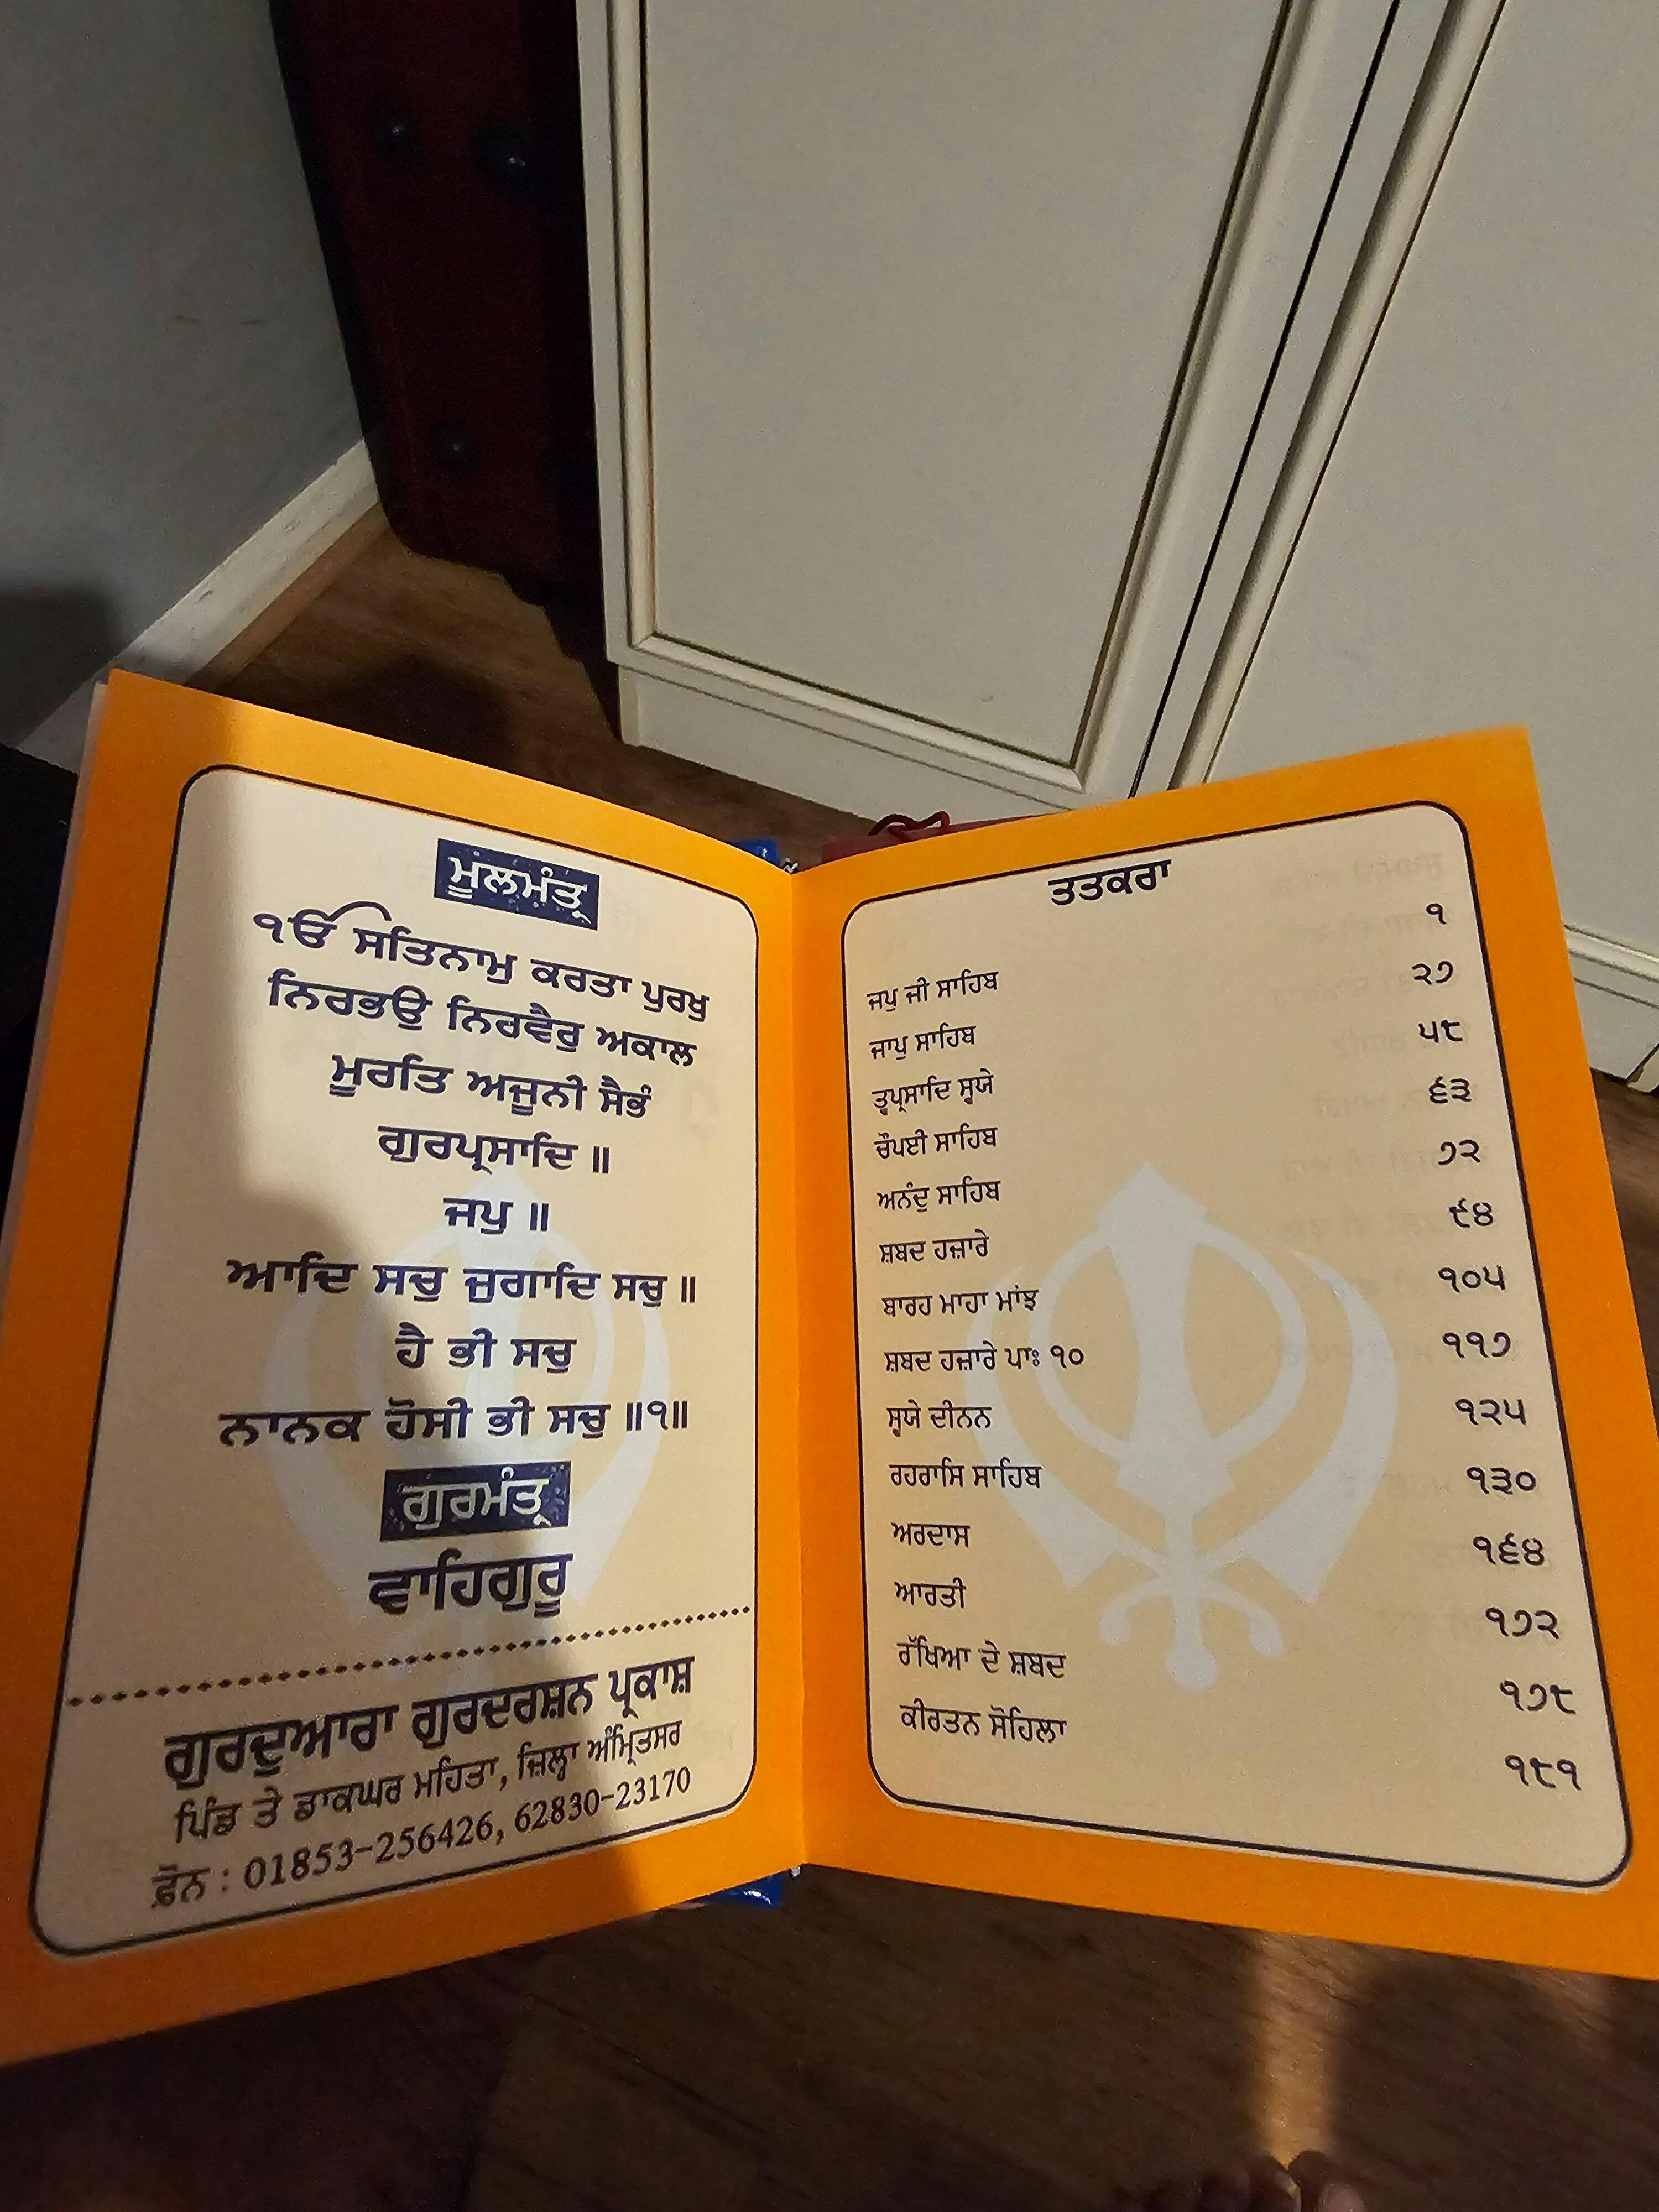 ਮੂਲਮੰਤ੍ਰ
ੴ ਸਤਿਨਾਮੁ ਕਰਤਾ ਪੁਰਖੁ
ਨਿਰਭਉ ਨਿਰਵੈਰੁ ਅਕਾਲ
ਮੂਰਤਿ ਅਜੂਨੀ ਸੈਭੰ
ਗੁਰਪ੍ਰਸਾਦਿ ॥
ਜਪੁ ॥
ਆਦਿ ਸਚੁ ਜੁਗਾਦਿ ਸਚੁ ॥
ਹੈ ਭੀ ਸਚੁ
ਨਾਨਕ ਹੋਸੀ ਭੀ ਸਚੁ ॥੧॥
ਗੁਰਮੰਤ੍ਰ
ਵਾਹਿਗੁਰੂ
ਗੁਰਦੁਆਰਾ ਗੁਰਦਰਸ਼ਨ ਪ੍ਰਕਾਸ਼
ਪਿੰਡ ਤੇ ਡਾਕਘਰ ਮਹਿਤਾ, ਜ਼ਿਲ੍ਹਾ ਅੰਮ੍ਰਿਤਸਰ
ਫ਼ੋਨ : 01853-256426, 62830-23170
ਤਤਕਰਾ
ਜਪੁ ਜੀ ਸਾਹਿਬ ੧
ਜਾਪੁ ਸਾਹਿਬ ੨੭
ਤ੍ਵਪ੍ਰਸਾਦਿ ਸ੍ਵਯੇ ੫੮
ਚੌਪਈ ਸਾਹਿਬ ੬੩
ਅਨੰਦੁ ਸਾਹਿਬ ੭੨
ਸ਼ਬਦ ਹਜ਼ਾਰੇ ੯੪
ਬਾਰਹ ਮਾਹਾ ਮਾਂਝ ੧੦੫
ਸ਼ਬਦ ਹਜ਼ਾਰੇ ਪਾਃ ੧੦ ੧੧੭
ਸ੍ਵਯੇ ਦੀਨਨ ੧੨੫
ਰਹਰਾਸਿ ਸਾਹਿਬ ੧੩੦
ਅਰਦਾਸ ੧੬੪
ਆਰਤੀ ੧੭੨
ਰੱਖਿਆ ਦੇ ਸ਼ਬਦ ੧੭੮
ਕੀਰਤਨ ਸੋਹਿਲਾ ੧੮੧